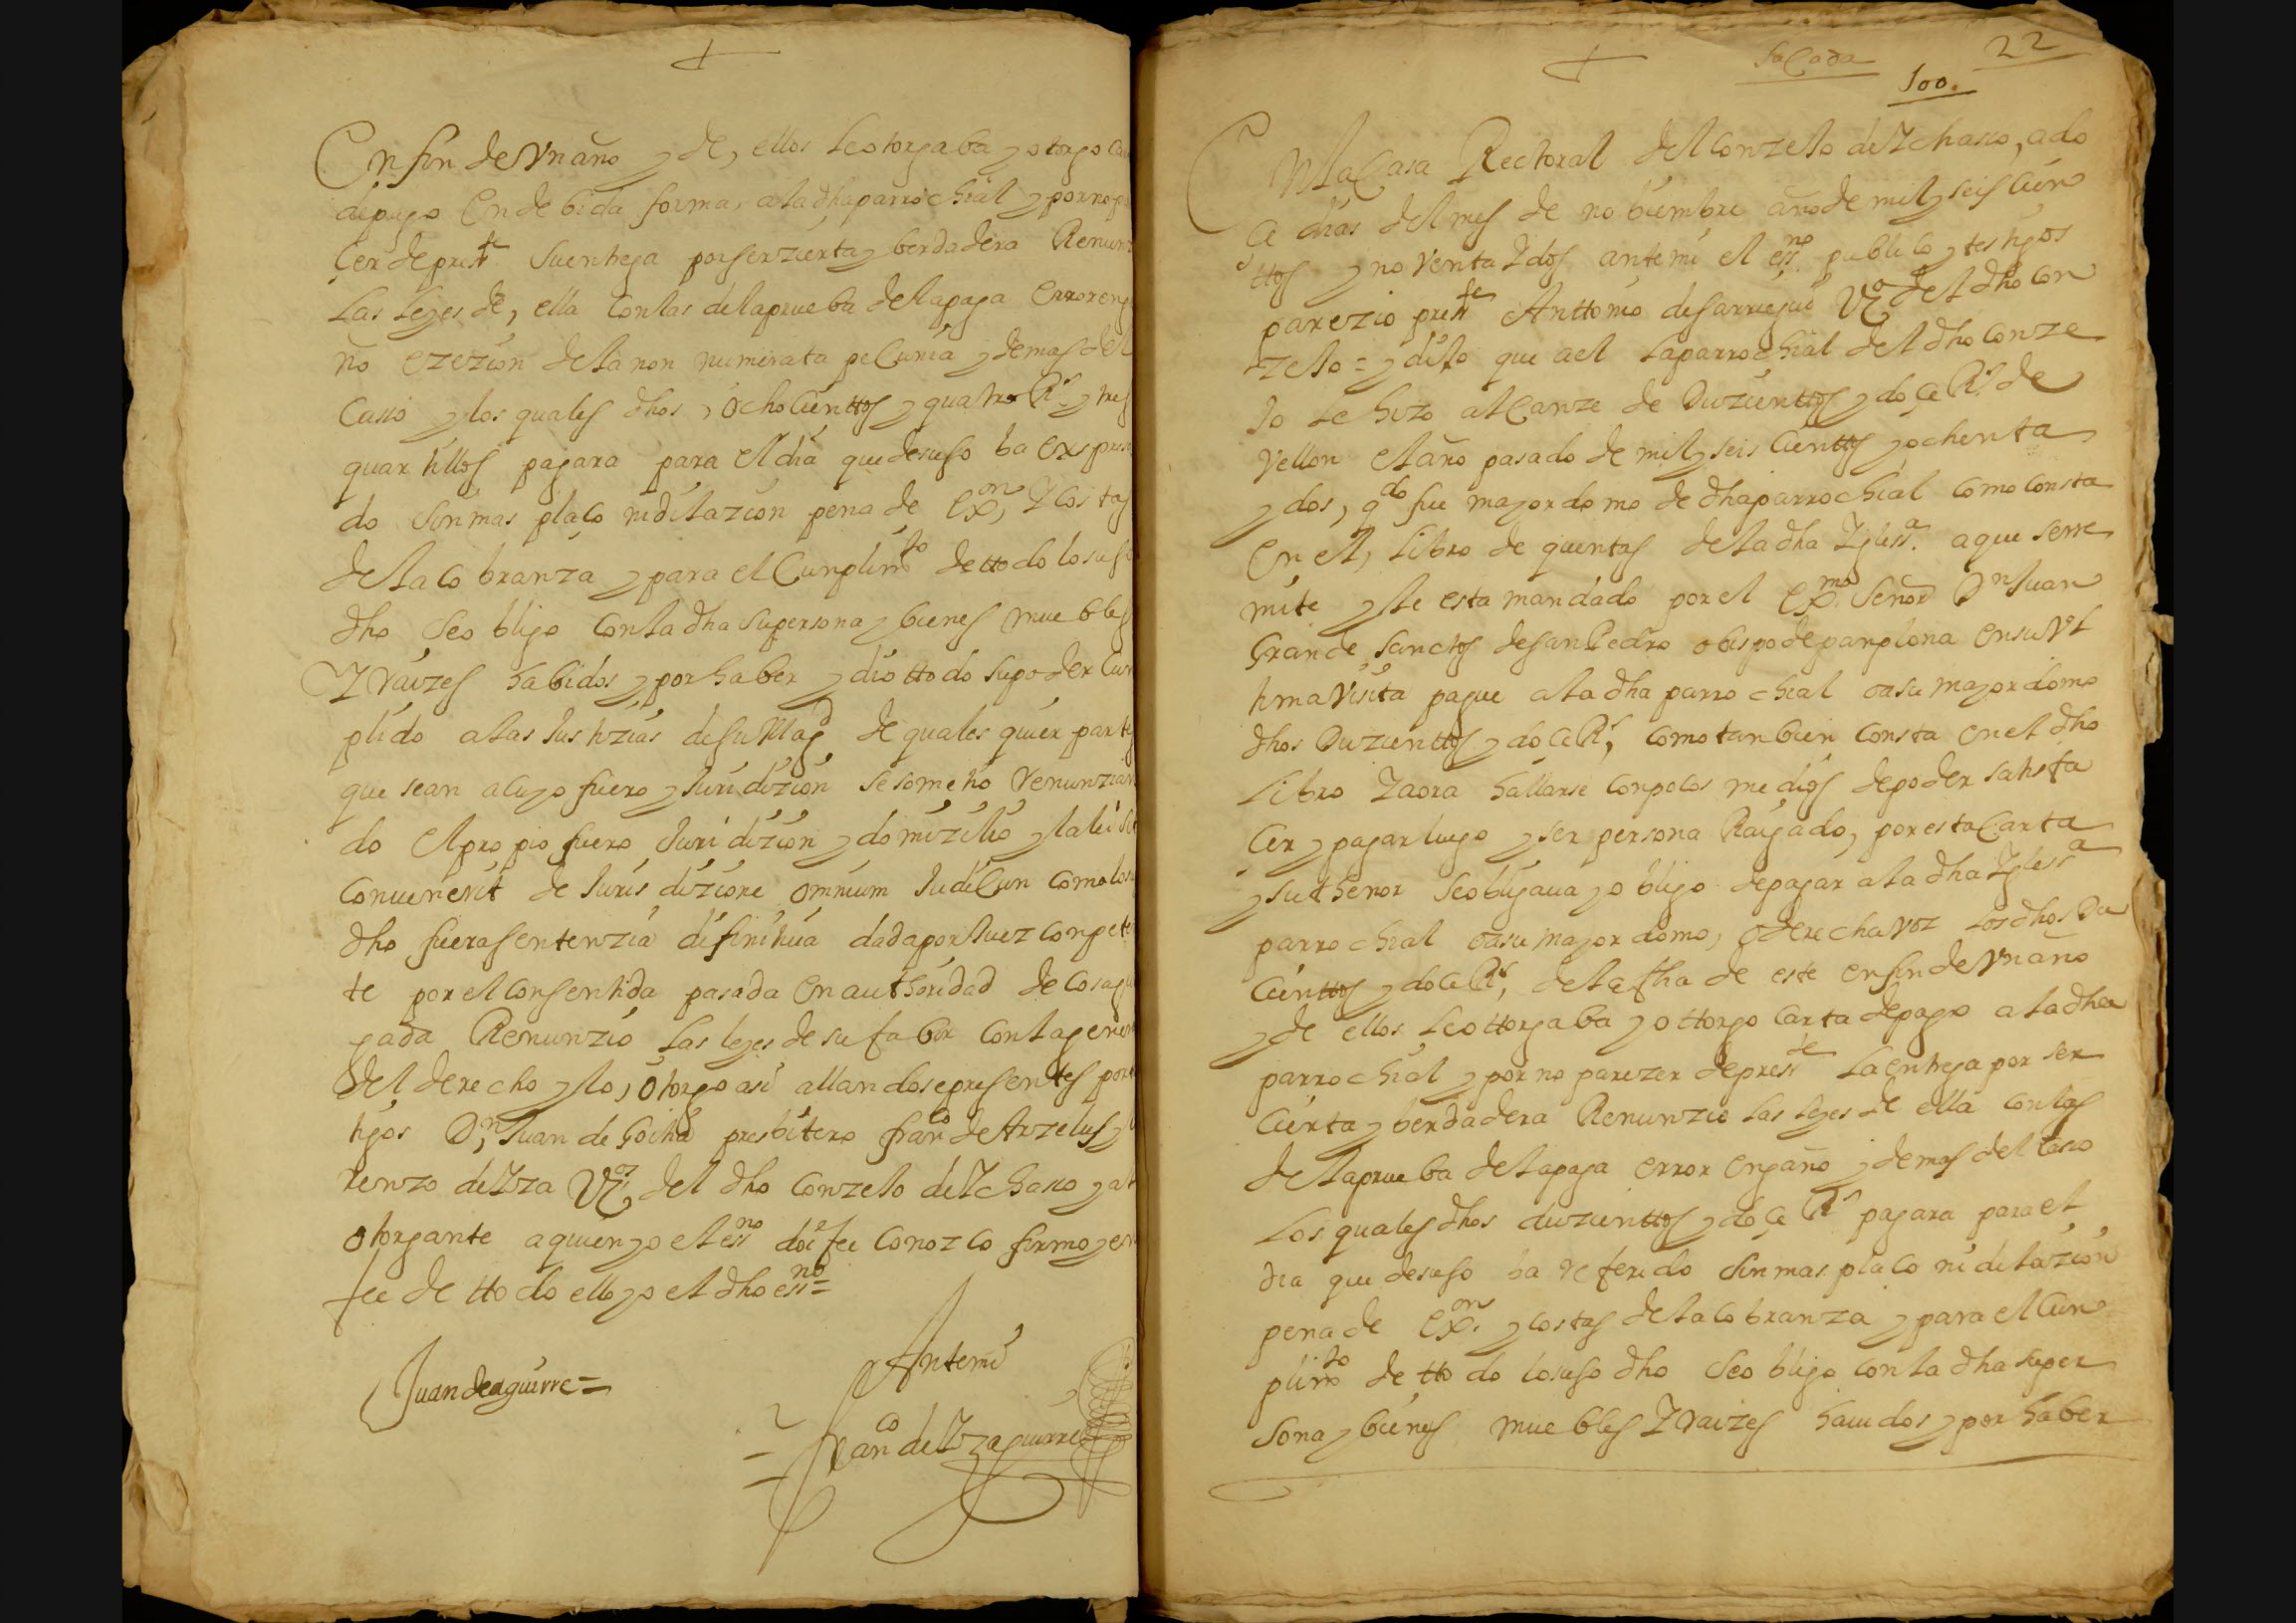 En fin de Vn año y de, ellos le otorgaba y otorgo
de pago En debida forma, a la dha parrochial y por no
Cer de press.te Su entrega por ser zierta y berdadera
Las Leyes de, ella Con las de la prueba de la paga Error
ño ezezion de la non numerata peCunia y demas del
Casso y los quales dhos, ochoCienttos y quatro Rs. y tres
quartillos pagara para el dia que desuso ba
do Sin mas plaço ni dilazion pena de exon, Y Costas
de la cobranza y para el Cunplimto de ttodo lo
dho Se obligo Con la dha su persona y bienes muebles
Y raizes habidos y por haber y dio ttodo Su poder
plido a las Justizias de Su Magd de quales quier partes
que sean a cuyo fuero y Juridizion se sometio
do El propio fuero Juridizion y domizilio y la lei
Conuenerit de Juris dizione omnium JudiCun Como
dho fuera sentenzia difinitiua dada por Juez
te por el Consentida pasada en authoridad de Cosa
gada Renunzio Las leyes de su fabor Con la
del derecho y lo, otorgo asi allandose presentes
tigos Dn, Juan de Goitia presbitero franco de Arzelus y
renzo de Yza Vzos, del dho Conzejo de Ychasso y
otorgante a quien yo el essno doi fee Conozco firmo y
fee de ttodo ello yo el dho essno=
Juan de aguirre=
Ante mi
= Franco de Yzaguirre
SaCada
22
100.
En la Casa Rectoral del Conzejo de Ychasso, a do
Ce dias del mes de nobiembre año de mil y seis Cien
ttos y noventa Y dos ante mi el essno publico y testigos
parezio presste Anttonio de Sarriegui Vzo del dho Con
zejo = y dijo que a el la parrochial del dho Conze
Jo le hizo alCanze de Duzienttos y doçe Rs. de
Vellon el año pasado de mil y seis Cienttos y ochenta
y dos, qdo fue mayordomo de dha parrochial Como consta
En el, Libro de quentas de la dha Yglessa. a que serre
mite y le esta mandado por el exmo. Señor Dn Juan
Grande Sanctos de San Pedro obispo de panplona en su Vl
tima Visita pague a la dha parrochial o a su mayordomo
dhos Duzienttos y doCe Rs, Como tanbien Consta en el dho
Libro Y aora hallarse Con polos medios de poder satisfa
Cer y pagar luego y ser persona Raygado, por esta Carta
y su thenor Se obligaua y obligo de pagar a la dha Yglessa
parrochial o a su mayordomo, o derecha voz Los dhos Du
Cienttos y doCe Rs, de la fha de este en fin de Vn año
y de ellos Le ottorgaba y ottorgo Carta de pago a la dha
parrochial y por no parezer de presste La entrega por ser
Cierta y berdadera Renunzio Las Leyes de ella Con las
de la prueba de la paga error engaño y demas del Caso
Los quales dhos duzienttos y doçe Rs pagara para el
dia que desuso ba referido Sin mas plaço ni dilazion
pena de exon. y Costas de la cobranza y para el Cun
plimto de ttodo lo suso dho Se obligo Con la dha su per
Sona y bienes muebles Y raizes hauidos y por haber